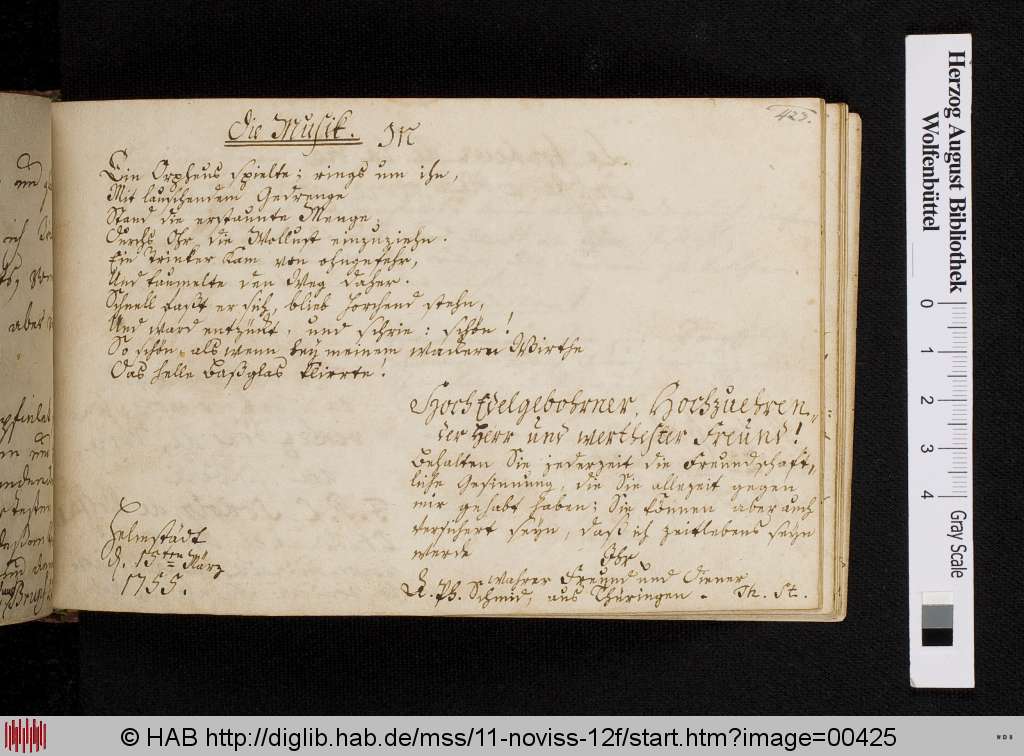 425.
Die Musik.
Ein Orpheus spielte; rings um ihn,
Mit lauschendem Gedrenge
Stand die erstaunte Menge,
Durchs Ohr die Wollust einzuziehn.
Ein Trinker kam von ohngefehr,
Und taumelte den Weg daher.
Schnell faßt er sich, blieb horchend stehn,
Und ward entzückt, und schrie: schön!
So schön, als wenn bey meinem wackern Wirthe
Das helle Baßglas klirrte!
HochEdelgebohrner, Hochzuehren-
der Herr und werthester Freund!
Behalten Sie jederzeit die Freundschaft-
liche Gesinnung, die Sie allezeit gegen
mir gehabt haben; Sie können aber auch
versichert seyn, daß ich zeitlebens seyn
werde
Ihr
wahrer Freund und Diener
Schmid, aus Thüringen. Th. St.
Helmstädt
d. 13ten März
1755.
Herzog August Bibliothek
Wolfenbüttel
0 1 2 3 4
Gray Scale
© HAB http://diglib.hab.de/mss/11-noviss-12f/start.htm?image=00425